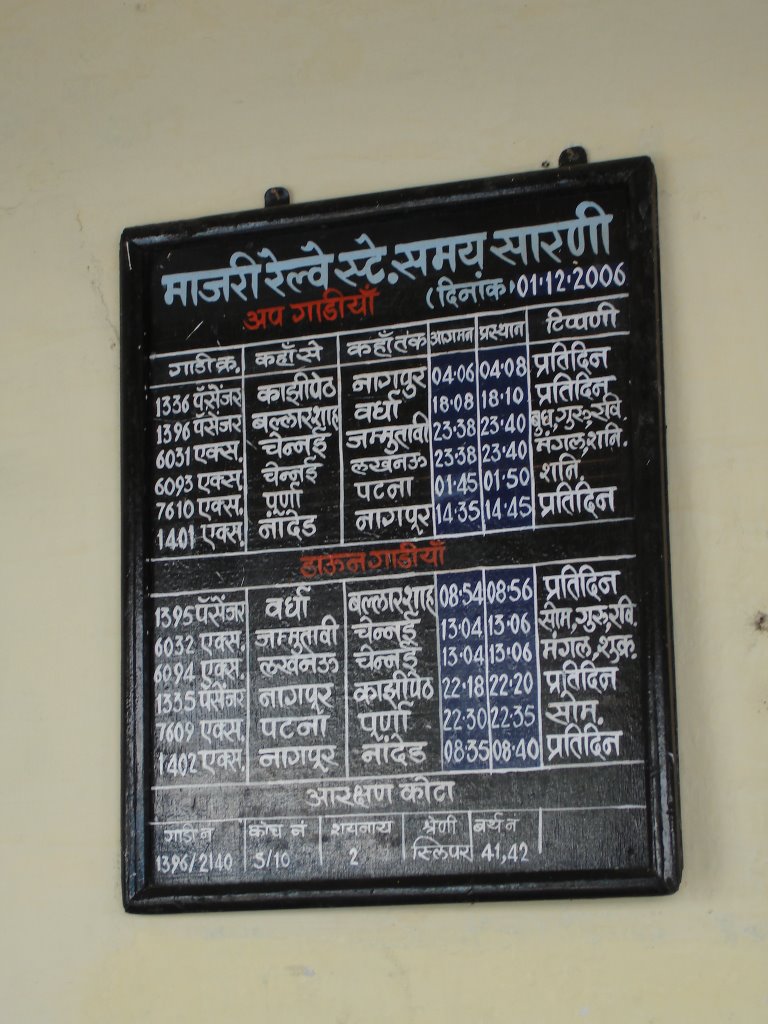 माजरी रेल्वे स्टे. समय सारणी
अप गाडीयाँ (दिनांक 01.12.2006
गाडी क्र. कहाँ से कहाँ तक आगमन प्रस्थान टिप्पणी
1336 पॅसेंजर काझीपेठ नागपुर 04.06 04.08 प्रतिदिन
1396 पॅसेंजर बल्लारशाह वर्धा 18.08 18.10 प्रतिदिन
6031 एक्स. चेन्नई जम्मुतावी 23.38 23.40 बुध, गुरु, रवि.
6093 एक्स. चेन्नई लखनऊ 23.38 23.40 मंगल, शनि.
7610 एक्स. पूर्णा पटना 01.45 01.50 शनि,
1401 एक्स. नाँदेड नागपूर 14.35 14.45 प्रतिदिन
डाऊन गाडीयाँ
1395 पॅसेंजर वर्धा बल्लारशाह 08.54 08.56 प्रतिदिन
6032 एक्स. जम्मुतावी चेन्नई 13.04 13.06 सोम, गुरु, रवि.
6094 एक्स. लखनऊ चेन्नई 13.04 13.06 मंगल, शुक्र.
1335 पॅसेंजर नागपूर काझीपेठ 22.18 22.20 प्रतिदिन
7609 एक्स. पटना पूर्णा 22.30 22.35 सोम.
1402 एक्स. नागपूर नाँदेड 08.35 08.40 प्रतिदिन
आरक्षण कोटा
गाडी न कोच नं शयनाय श्रेणी बर्थ न
1396/2140 S/10 2 स्लिपर 41,42